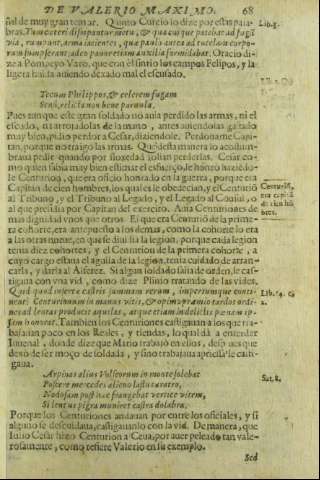 DE VALERIO MAXIMO. 68
ñal de muy gran temor. Quinto Curcio lo dize por estas pala-
bras. Tum ceteri dissipantur metu, & qua cuique patebat ad fugā Lib. 3.
via, rumpunt, arma iacientes, que paulo antea ad tutelam corpo-
rum sumpserant: adeo pauor etiam auxilia formidabat. Oracio di-
ze a Pompeyo Varo, que con el sintio los campos Felipos, y la
ligera huida auiendo dexado mal el escudo.
Tecum Philippos, & celerem fugam
Sensi, relicta non bene parmula.
Pues aunque este gran soldado no auia perdido las armas, ni el
escudo, ni arrojadolas de la mano, antes auiendolas gastado
muy bien, pidio perdon a Cesar, diziendole. Perdoname Capi-
tan, porque no traigo las armas. Que desta manera lo acostum-
braua pedir quando por floxedad solian perderlas. Cesar co-
mo quien sabia muy bien estimar el esfuerço, le honro haziendo-
le Centurion, que era oficio honroso en la guerra, porque era
Capitan de cien hombres, los quales le obedecian, y el Centuriō
al Tribuno, y el Tribuno al Legado, y el Legado al Consul, o
al que presidia por Capitan del exercito. Auia Centuriones de
mas dignidad vnos que otros. El que era Centuriō de la prime-
ra cohorte, era antepuesto a los demas, como la cohorte lo era
a las otras nueue, en que se diuidia la legion, porque cada legion
tenia diez cohortes, y el Centurion de la primera cohorte, a
cuyo cargo estaua el aguila de la legion, tenia cuidado de arran-
carla, y darla al Alferez. Si algun soldado salia de orden, le cas-
tigaua con vna vid, como dize Plinio tratando de las vides.
Quid quod inserta castris summam rerum, imperiumque conti-
nent: Centurionum in manus vitis, & opimo præmio tardos ordi-
nes ad lentas producit aquilas, atque etiam in delictis pœnam ip-
sam honorat. Tambien los Centuriones castigauan a los que tra-
baxauan poco en los Reales, y tiendas, lo qual da a entender
Iuuenal, donde dize que Mario trabajò en ellos, despues que
dexò de ser moço de soldada, y sino trabajaua apriessa le casti-
gaua.
Arpinas alius Volscorum in monte solebat
Poscere mercedes alieno lassus aratro,
Nodosam post hæc frangebat vertice vitem,
Si lentus pigra muniret castra dolabra.
Porque los Centuriones andauan por entre los oficiales, y si
alguno se descuidaua, castigauanlo con la vid. De manera, que
Iulio Cesar hizo Centurion a Ceua, por auer peleado tan vale-
rosamente, como refiere Valerio en su exemplo.
Sed
Centuriō,
era capitā
de cien hō
bres.
Lib. 14. c.
1.
Sat. 8.